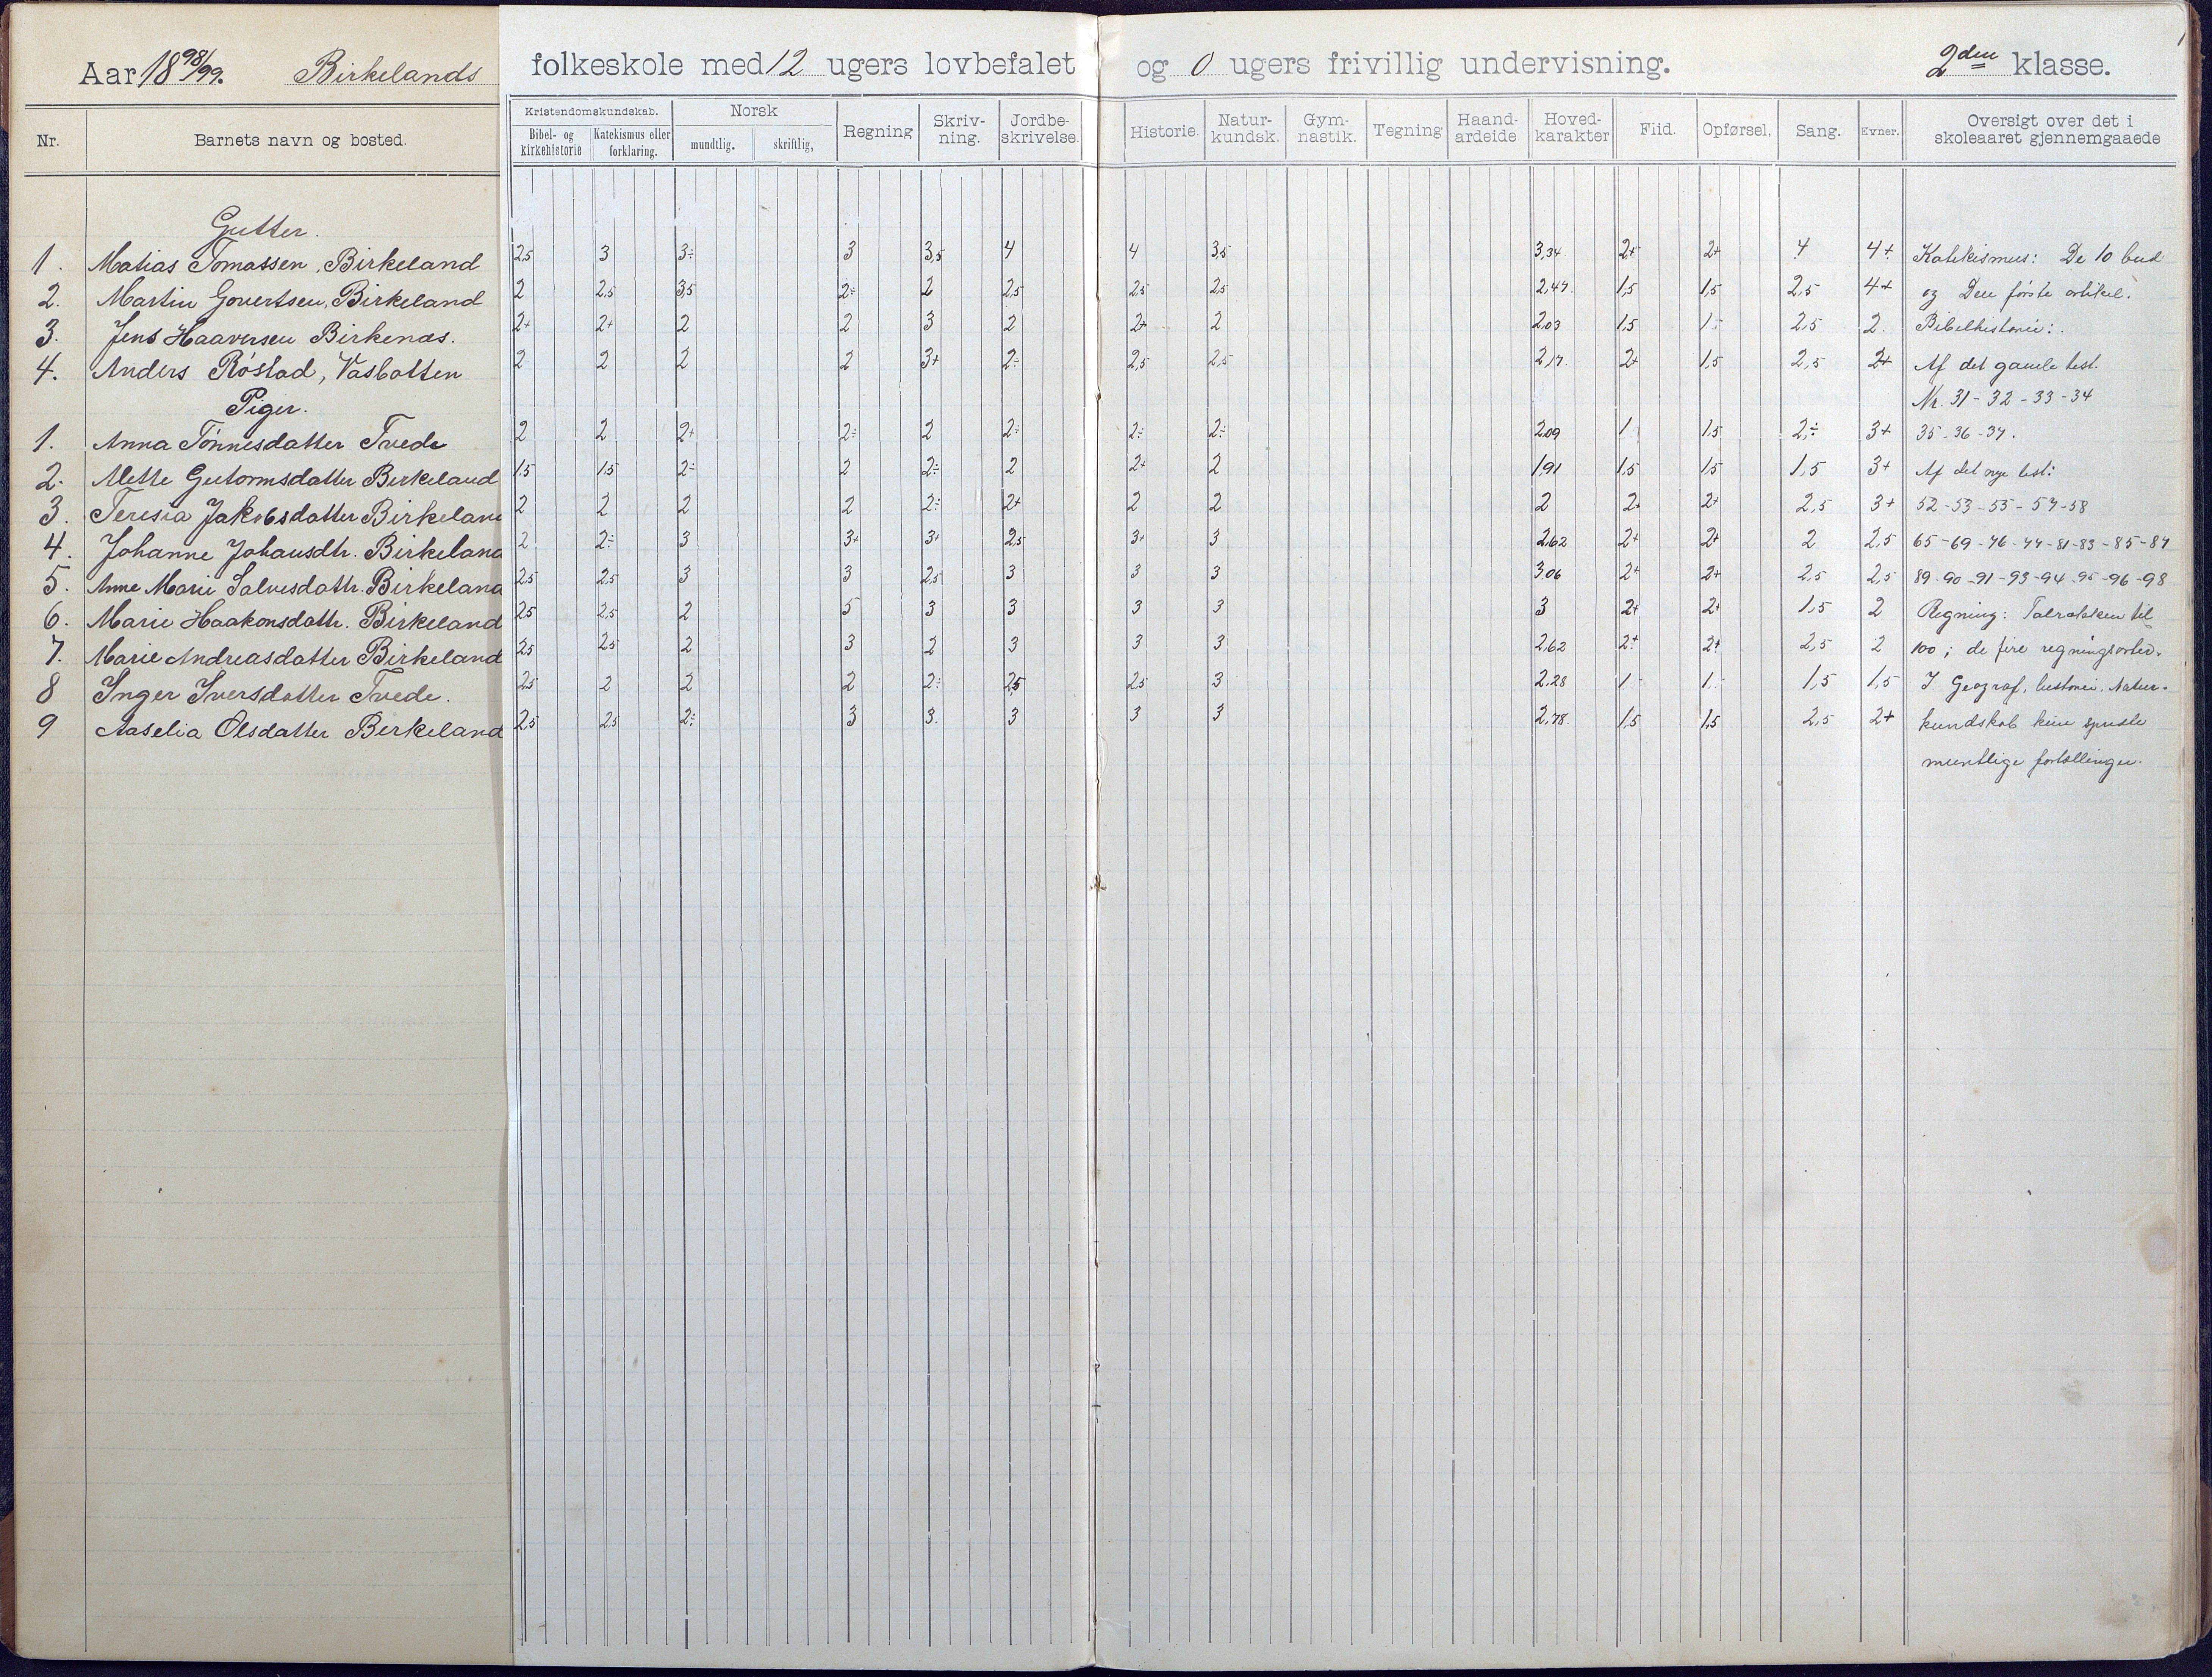 Aar 1898/99. Birkelands folkeskole med 12 ugers lovbefalet og 0 ugers frivillig undervisning. 2den klasse.
Nr. Barnets navn og bosted. Kristendomskundskab. Bibel- og kirkehistorie Katekismus eller forklaring. Norsk mundtlig. skriftlig, Regning Skriv-ning. Jordbe-skrivelse. Historie. Natur-kundsk. Gym-nastik. Tegning Haand-ardeide Hoved-karakter Flid. Opførsel. Sang. Evner. Oversigt over det i skoleaaret gjennemgaaede
Gutter.
1. Matias Tomassen, Birkeland 2,5 3 3÷ 3 3,5 4 4 3,5 3,34 2+ 2+ 4 4+ Katekismus: De 10 bud
2. Martin Govertsen, Birkeland 2 2,5 3,5 2÷ 2 2,5 2,5 2,5 2,47. 1,5 1,5 2,5 4+ og Den første artikel.
3. Jens Haaversen Birkenæs. 2+ 2+ 2 2 3 2 2+ 2 2,03 1,5 1,5 2,5 2. Bibelhistorie:
4. Anders Røstad, Vasbotten 2 2 2 2 3+ 2÷ 2,5 2,5 2,17. 2+ 1,5 2,5 2+ Af det gamle test.
Piger. Nr. 31-32-33-34
1. Anna Tønnesdatter Tvede 2 2 2+ 2÷ 2 2÷ 2÷ 2÷ 2,09 1 1,5 2÷ 3+ 35-36-37.
2. Mette Gutormsdatter Birkeland 1,5 1,5 2÷ 2 2÷ 2 2+ 2 1,91 1,5 1,5 1,5 3+ Af det nye test:
3. Teresia Jakobsdatter Birkeland 2 2 2 2 2÷ 2+ 2 2 2 2+ 2+ 2,5 3+ 52-53-55-57-58
4. Johanne Johansdtr. Birkeland 2 2÷ 3 3+ 3+ 2,5 3+ 3 2,62 2+ 2+ 2 2,5 65-69-76-77-81-83-85-87
5. Anne Marie Salvesdattr. Birkeland 2,5 2,5 3 3 2,5 3 3 3 3,06 2+ 2+ 2,5 2,5 89-90-91-93-94-95-96-98
6. Marie Haakonsdattr. Birkeland 2,5 2,5 2 5 3 3 3 3 3 2+ 2+ 1,5 2 Regning: Talrækken til
7. Marie Andreasdatter Birkeland 2,5 2,5 2 3 2 3 3 3 2,62 2+ 2+ 2,5 2 100; de fire regningsarter.
8 Inger Iversdatter Tvede. 2,5 2 2 2 2÷ 2,5 2,5 3 2,28 1 1 1,5 1,5 I Geograf, historie, Natur-
9 Aaselia Olsdatter Birkeland 2,5 2,5 2÷ 3 3 3 3 3 2,78. 1,5 1,5 2,5 2+ kundskab kun spredte
muntlige fortællinger.